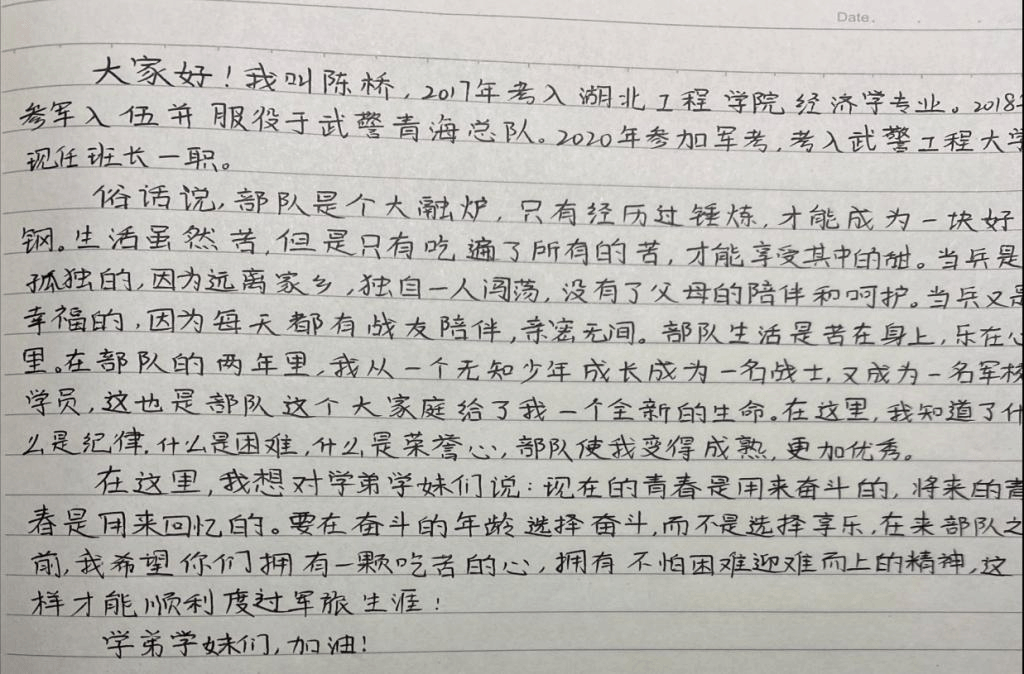 Date.
大家好！我叫陈桥，2017年考入湖北工程学院经济学专业。2018年
参军入伍并服役于武警青海总队。2020年参加军考，考入武警工程大学
现任班长一职。
俗话说，部队是个大融炉，只有经历过锤炼，才能成为一块好
钢。生活虽然苦，但是只有吃遍了所有的苦，才能享受其中的甜。当兵是
孤独的，因为远离家乡，独自一人闯荡，没有了父母的陪伴和呵护。当兵又是
幸福的，因为每天都有战友陪伴，亲密无间。部队生活是苦在身上，乐在心
里。在部队的两年里，我从一个无知少年成长成为一名战士，又成为一名军校
学员，这也是部队这个大家庭给了我一个全新的生命。在这里，我知道了什
么是纪律，什么是困难，什么是荣誉心，部队使我变得成熟，更加优秀。
在这里，我想对学弟学妹们说：现在的青春是用来奋斗的，将来的青
春是用来回忆的。要在奋斗的年龄选择奋斗，而不是选择享乐，在来部队之
前，我希望你们拥有一颗吃苦的心，拥有不怕困难迎难而上的精神，这
样才能顺利度过军旅生涯！
学弟学妹们，加油！